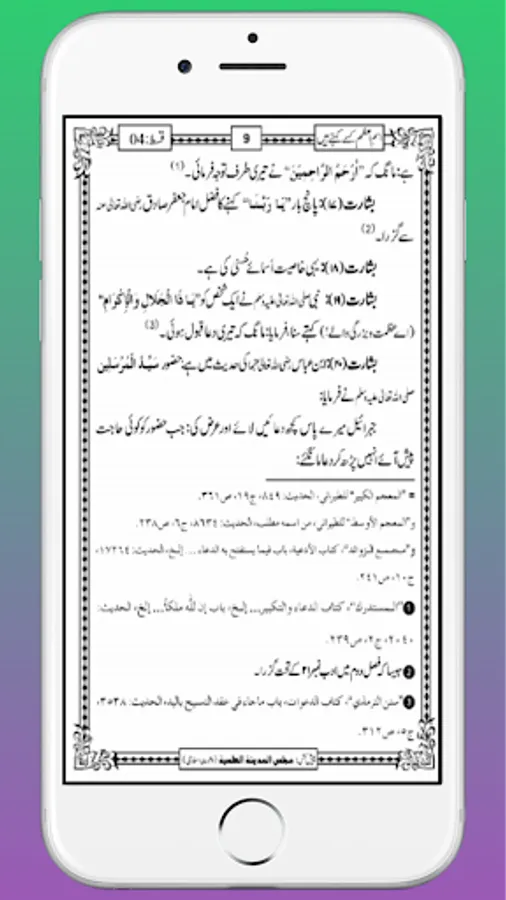 اسم اعظم کسے کہتے ہیں 9 قسط:04
ہے: مانگ کہ "اَرْحَمُ الرَّاحِمِیْنَ" نے تیری طرف توجہ فرمائی۔ (1)
بشارت (۱۷): پانچ بار "یَا رَبَّنَا" کہنے کا فضل امام جعفر صادق رضی اللہ تعالیٰ عنہ
سے گزرا۔ (2)
بشارت (۱۸): یہی خاصیت اَسمائے حُسنٰی کی ہے۔
بشارت (۱۹): نبی صلی اللہ تعالیٰ علیہ وسلم نے ایک شخص کو "یَا ذَا الْجَلَالِ وَالْإِکْرَام"
(اے عظمت و بزرگی والے!) کہتے سنا، فرمایا: مانگ کہ تیری دعا قبول ہوئی۔ (3)
بشارت (۲۰): ابن عباس رضی اللہ تعالیٰ عنہما کی حدیث میں ہے: حضور سَیِّدُ الْمُرْسَلِین
صلی اللہ تعالیٰ علیہ وسلم نے فرمایا:
جبرائیل میرے پاس کچھ دعائیں لائے اور عرض کی: جب حضور کو کوئی حاجت
پیش آئے انہیں پڑھ کر دعا مانگئے:
= "المعجم الكبير" للطبراني، الحديث: ٨٤٩، ج١٩، ص٣٦١.
و"المعجم الأوسط" للطبراني، من اسمه مطلب، الحديث: ٨٦٣٤، ج٦، ص٢٣٨.
و"مجمع الزوائد"، كتاب الأدعية، باب فيما يستفتح به الدعاء... إلخ، الحديث: ١٧٢٦٤،
ج١٠، ص٢٤١.
1 "المستدرك"، كتاب الدعاء والتكبير... إلخ، باب إن لله ملكاً... إلخ، الحديث:
٢٠٤٠، ج٢، ص٢٣٩.
2 جیسا کہ فصل دوم میں ادب نمبر ۲۱ کے تحت گزرا۔
3 "سنن الترمذي"، كتاب الدعوات، باب ما جاء في عقد التسبيح باليد، الحديث: ٣٥٣٨،
ج٥، ص٣١٢.
پیش کش: مجلس المدينة العلمية (دعوتِ اسلامی)